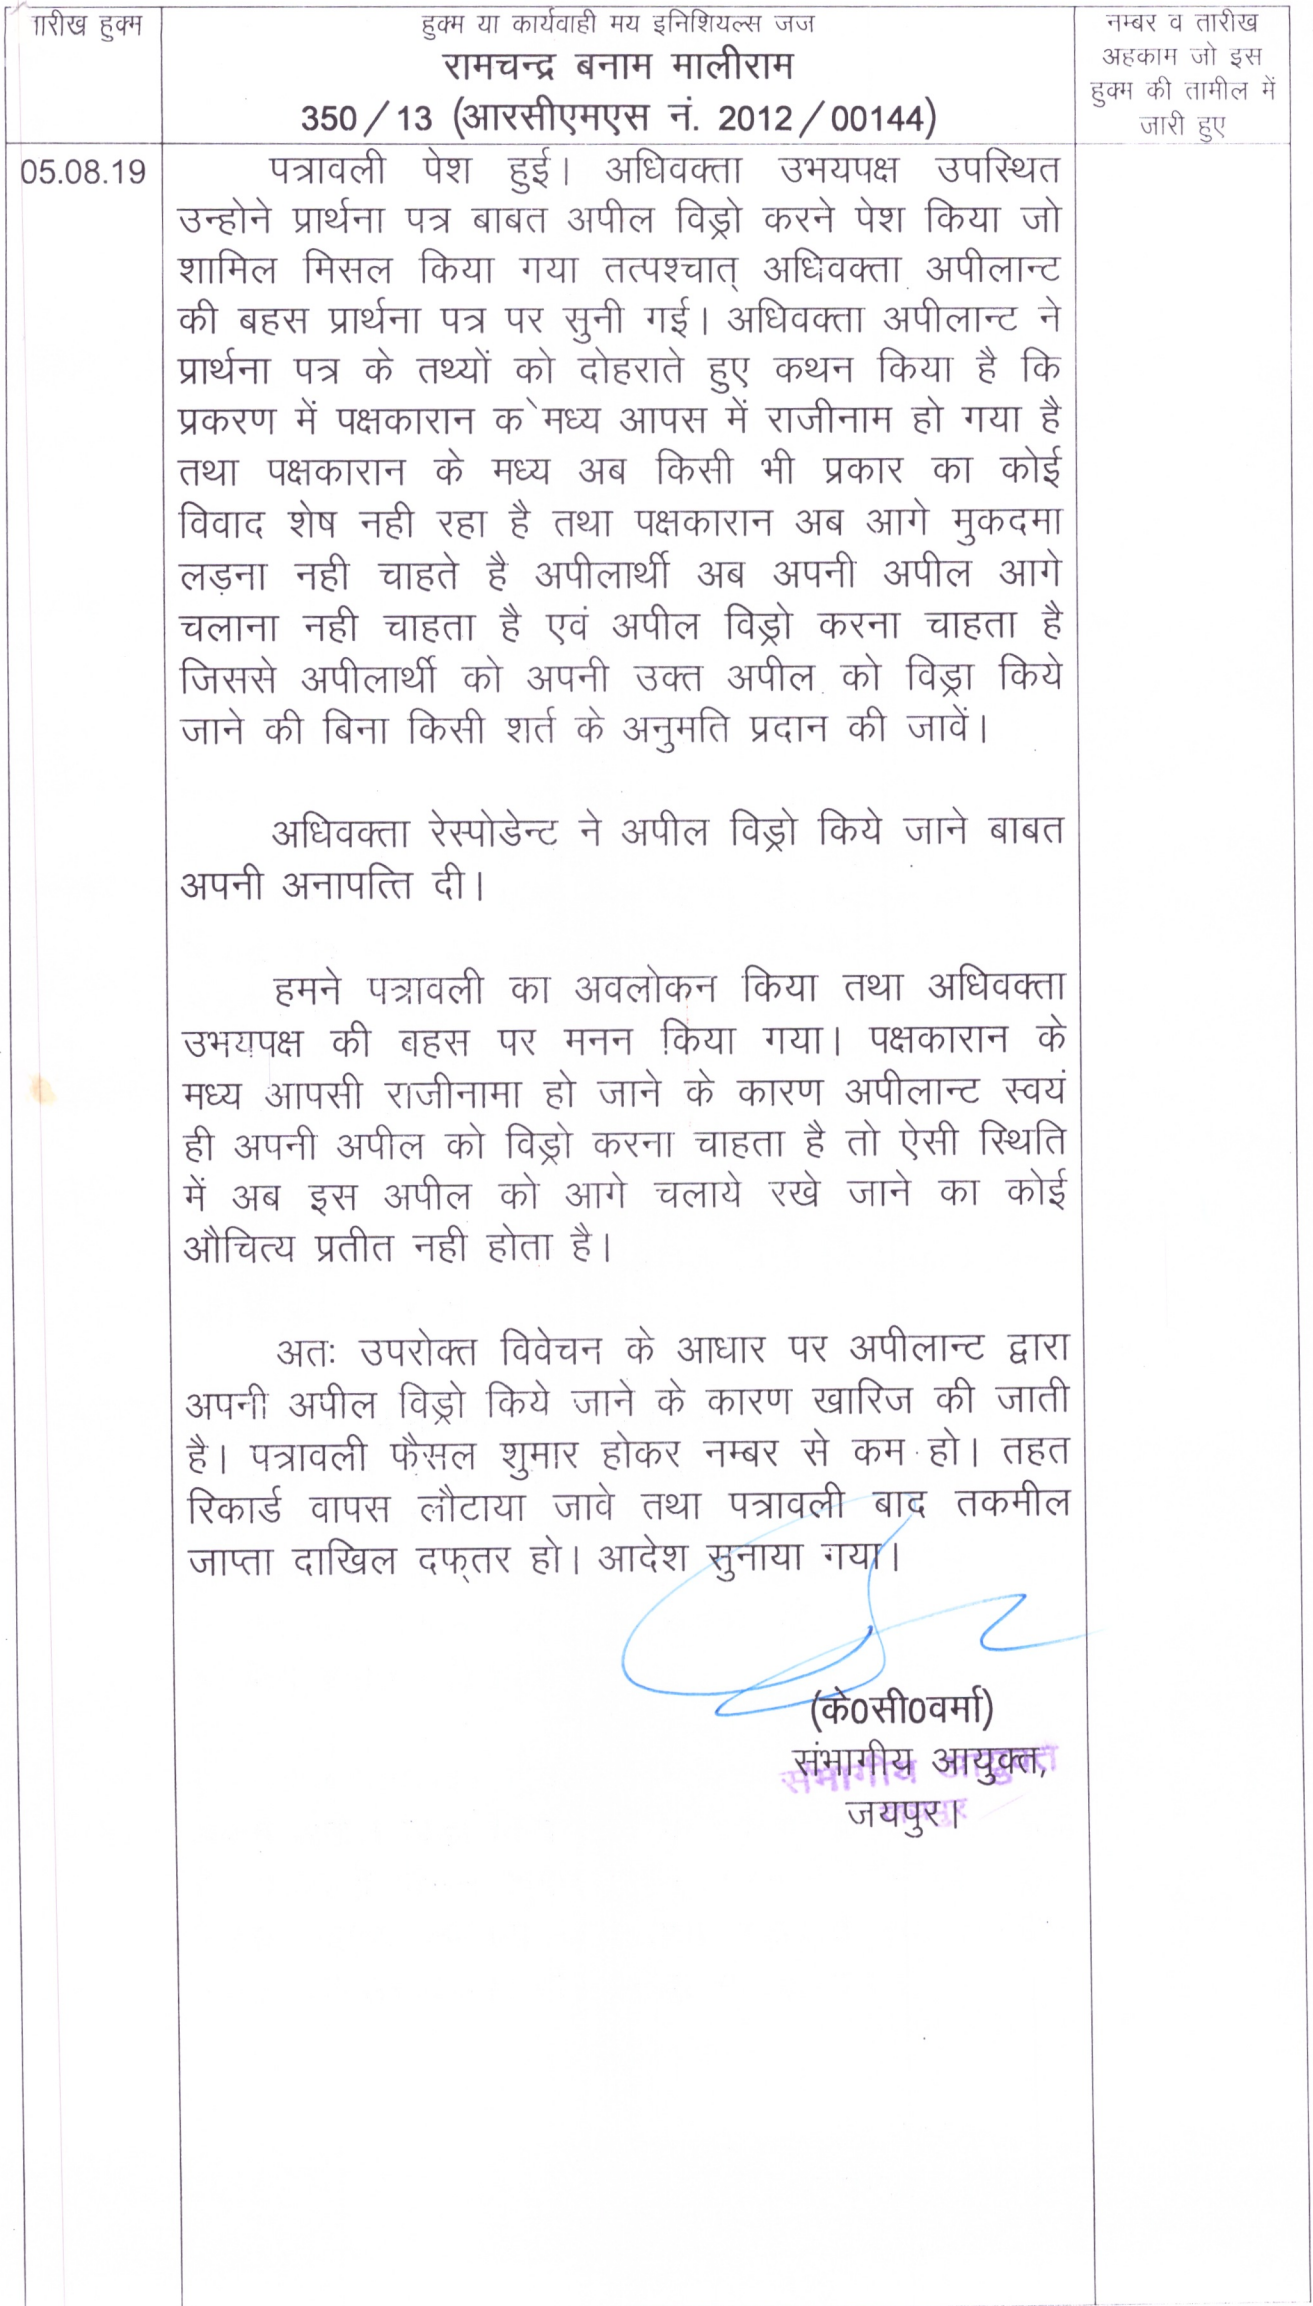 तारीख हुक्म
हुक्म या कार्यवाही मय इनिशियल्स जज
नम्बर व तारीख
अहकाम जो इस
हुक्म की तामील में
जारी हुए
रामचन्द्र बनाम मालीराम
350/13 (आरसीएमएस नं. 2012/00144)
05.08.19
पत्रावली पेश हुई। अधिवक्ता उभयपक्ष उपस्थित
उन्होने प्रार्थना पत्र बाबत अपील विड्रो करने पेश किया जो
शामिल मिसल किया गया तत्पश्चात् अधिवक्ता अपीलान्ट
की बहस प्रार्थना पत्र पर सुनी गई। अधिवक्ता अपीलान्ट ने
प्रार्थना पत्र के तथ्यों को दोहराते हुए कथन किया है कि
प्रकरण में पक्षकारान के मध्य आपस में राजीनाम हो गया है
तथा पक्षकारान के मध्य अब किसी भी प्रकार का कोई
विवाद शेष नही रहा है तथा पक्षकारान अब आगे मुकदमा
लड़ना नही चाहते है अपीलार्थी अब अपनी अपील आगे
चलाना नही चाहता है एवं अपील विड्रो करना चाहता है
जिससे अपीलार्थी को अपनी उक्त अपील को विड्रा किये
जाने की बिना किसी शर्त के अनुमति प्रदान की जावें।
अधिवक्ता रेस्पोडेन्ट ने अपील विड्रो किये जाने बाबत
अपनी अनापत्ति दी।
हमने पत्रावली का अवलोकन किया तथा अधिवक्ता
उभयपक्ष की बहस पर मनन किया गया। पक्षकारान के
मध्य आपसी राजीनामा हो जाने के कारण अपीलान्ट स्वयं
ही अपनी अपील को विड्रो करना चाहता है तो ऐसी स्थिति
में अब इस अपील को आगे चलाये रखे जाने का कोई
औचित्य प्रतीत नही होता है।
अतः उपरोक्त विवेचन के आधार पर अपीलान्ट द्वारा
अपनी अपील विड्रो किये जाने के कारण खारिज की जाती
है। पत्रावली फैसल शुमार होकर नम्बर से कम हो। तहत
रिकार्ड वापस लौटाया जावे तथा पत्रावली बाद तकमील
जाप्ता दाखिल दफ्तर हो। आदेश सुनाया गया।
(के0सी0वर्मा)
संभागीय आयुक्त,
जयपुर।
संभागीय आयुक्त
जयपुर